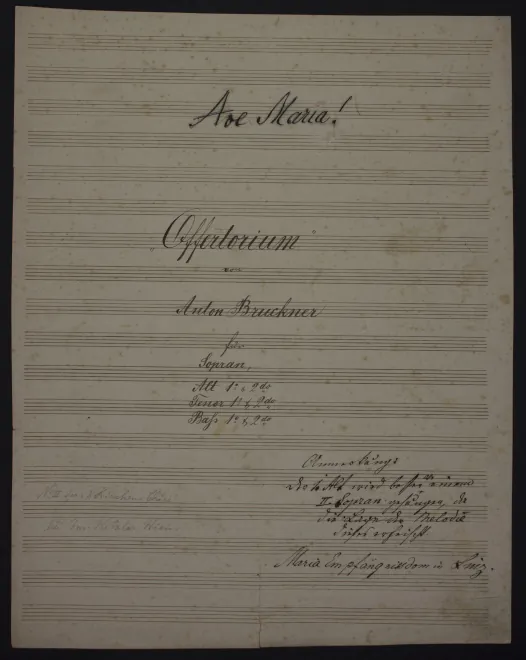 Ave Maria!
Offertorium
von
Anton Bruckner
für
Sopran,
Alt 1º & 2do
Tenor 1º & 2do
Baß 1º & 2do
Anmerkung:
Alt wird besser von einem
II. Sopran gesungen, da
die Lage der Melodie
dieses erheischt.
Maria Empfängnisdom in Linz.